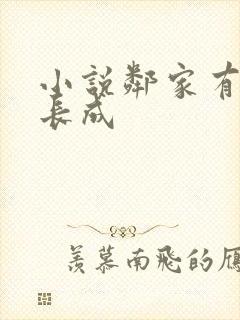 小説鄰家有
長成
羨慕南飛的雁